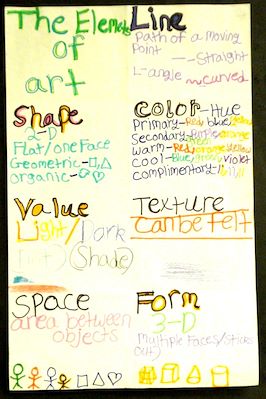 The Elements
of
art
Line
Path of a Moving
Point
Straight
L-angle
curved
Shape
2-D
Flat/one Face
Geometric-
organic-
Color-Hue
Primary-Red, blue, yellow
Secondary-Purple, orange
green
warm-Red, orange, yellow
cool-Blue, green, violet
complimentary
Value
Light/Dark
(tint)
(Shade)
Texture
Can be felt
Space
area between
objects
Form
3-D
Multiple Faces/Sticks
out